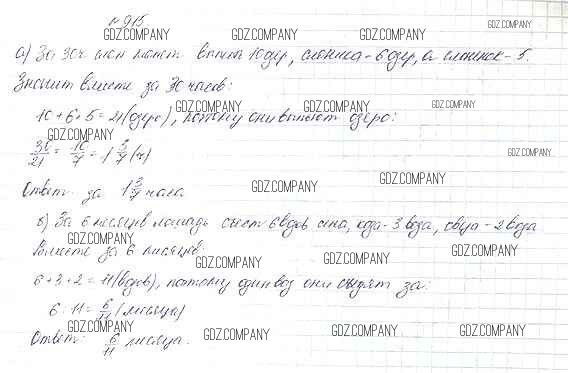 № 915
а) За 30ч слон может выпить 10 озер, слониха - 6 озер, а слоненок - 5.
Значит вместе за 30 часов:
10 + 6 + 5 = 21 (озеро), потому они выпьют озеро:
30/21 = 10/7 = 1 3/7 (ч)
Ответ: за 1 3/7 часа.
б) За 6 месяцев лошадь съест 6 возов сена, коза - 3 воза, овца - 2 воза
Вместе за 6 месяцев:
6 + 3 + 2 = 11 (возов), потому один воз они съедят за:
6 : 11 = 6/11 (месяца)
Ответ: 6/11 месяца.
GDZ.COMPANY GDZ.COMPANY GDZ.COMPANY GDZ.COMPANY
GDZ.COMPANY GDZ.COMPANY GDZ.COMPANY
GDZ.COMPANY GDZ.COMPANY
GDZ.COMPANY GDZ.COMPANY
GDZ.COMPANY GDZ.COMPANY GDZ.COMPANY GDZ.COMPANY
GDZ.COMPANY GDZ.COMPANY GDZ.COMPANY GDZ.COMPANY